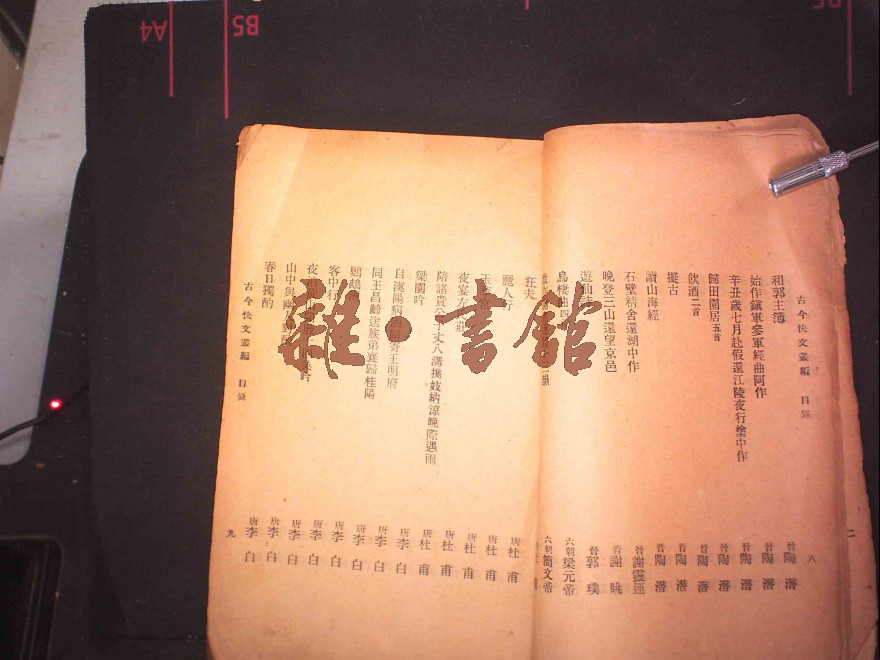 A4
B5
雜·書館
古今快文叢編　目錄
八
和郭主簿　晉陶潛
始作鎭軍參軍經曲阿作　晉陶潛
辛丑歲七月赴假還江陵夜行塗中作　晉陶潛
歸田園居五首　晉陶潛
飲酒二首　晉陶潛
擬古　晉陶潛
讀山海經　晉陶潛
石壁精舍還湖中作　晉謝靈運
晚登三山還望京邑　晉謝朓
遊仙　晉郭璞
烏棲曲四　六朝梁元帝
六朝簡文帝
狂夫　唐杜甫
麗人行　唐杜甫
唐杜甫
夜宴左　莊　唐杜甫
陪諸貴公子丈八溝攜妓納涼晚際遇雨　唐杜甫
梁園吟　唐李白
自漢陽病酒歸寄王明府　唐李白
同王昌齡送族弟襄歸桂陽　唐李白
鸚鵡洲　唐李白
客中行　唐李白
夜泊　吟　唐李白
山中與幽人對酌　唐李白
春日獨酌　唐李白
古今快文叢編　目錄
九
二